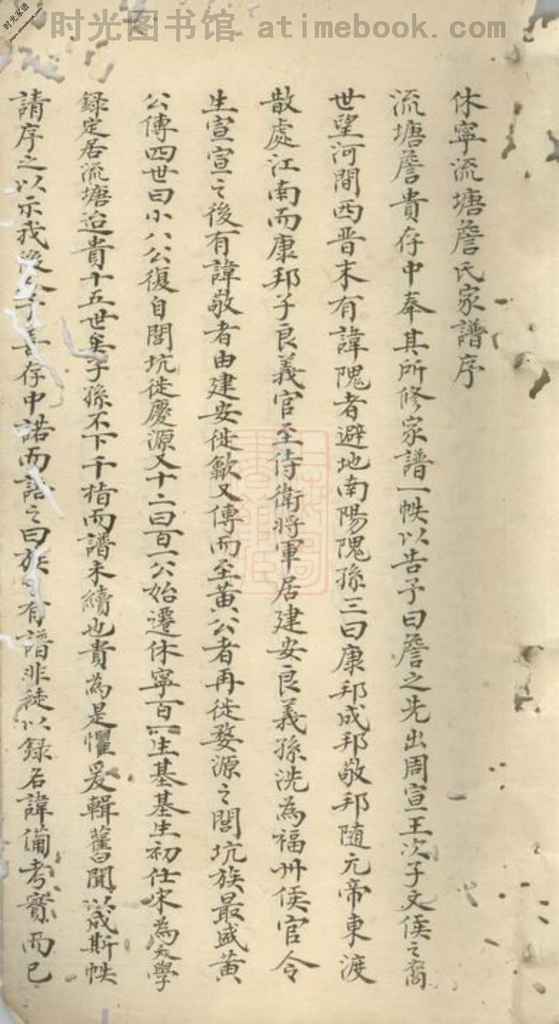 时光图书馆 atimebook.com
时光家谱
休寧流塘詹氏家譜序
流塘詹貴存中奉其所修家譜一帙以告予曰詹之先出周宣王次子文侯之裔
世望河間西晋末有諱隗者避地南陽隗孫三曰康邦成邦敬邦随元帝東渡
散處江南而康邦子良義官至侍衛將軍居建安良義孫洗為福州侯官令
生宣宣之後有諱敬者由建安徙歙又傳而至黄公者再徙婺源之閭坑族最盛黄
公傳四世曰小八公復自閭坑徙慶源又十二曰百一公始遷休寧百一生基基生初仕宋為太學
録定居流塘迨貴十五世矣子孫不下千指而譜未續也貴為是懼爰輯舊聞以成斯帙
請序之以示我後人予善存中諾而語之曰族有譜非徒以録名諱備考實而已